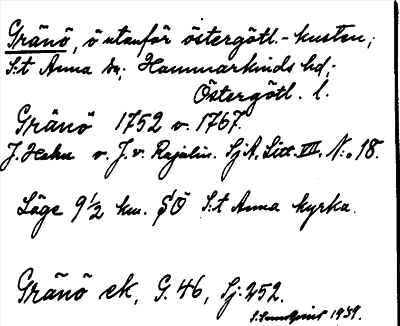 Gränö, ö utanför östergötl.-kusten;
S:t Anna sn; Hammarkinds hd;
Östergötl. l.
Gränö 1752 o. 1767.
J. Hahn o. J. v. Rajalin. SjA, Litt. VII, N:o 18.
Läge 9 1/2 km. SÖ S:t Anna kyrka.
Gränö ek, G. 46, Sj: 252.
1939.